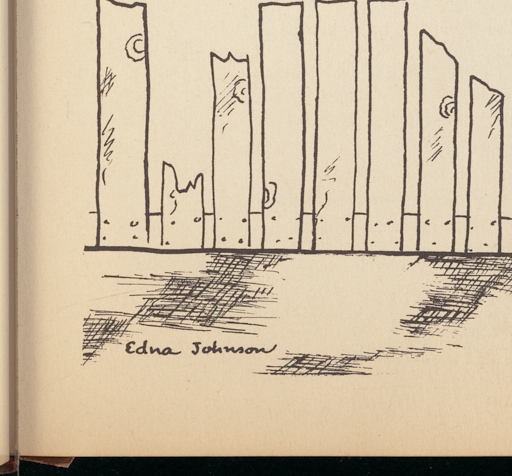 Edna Johnson